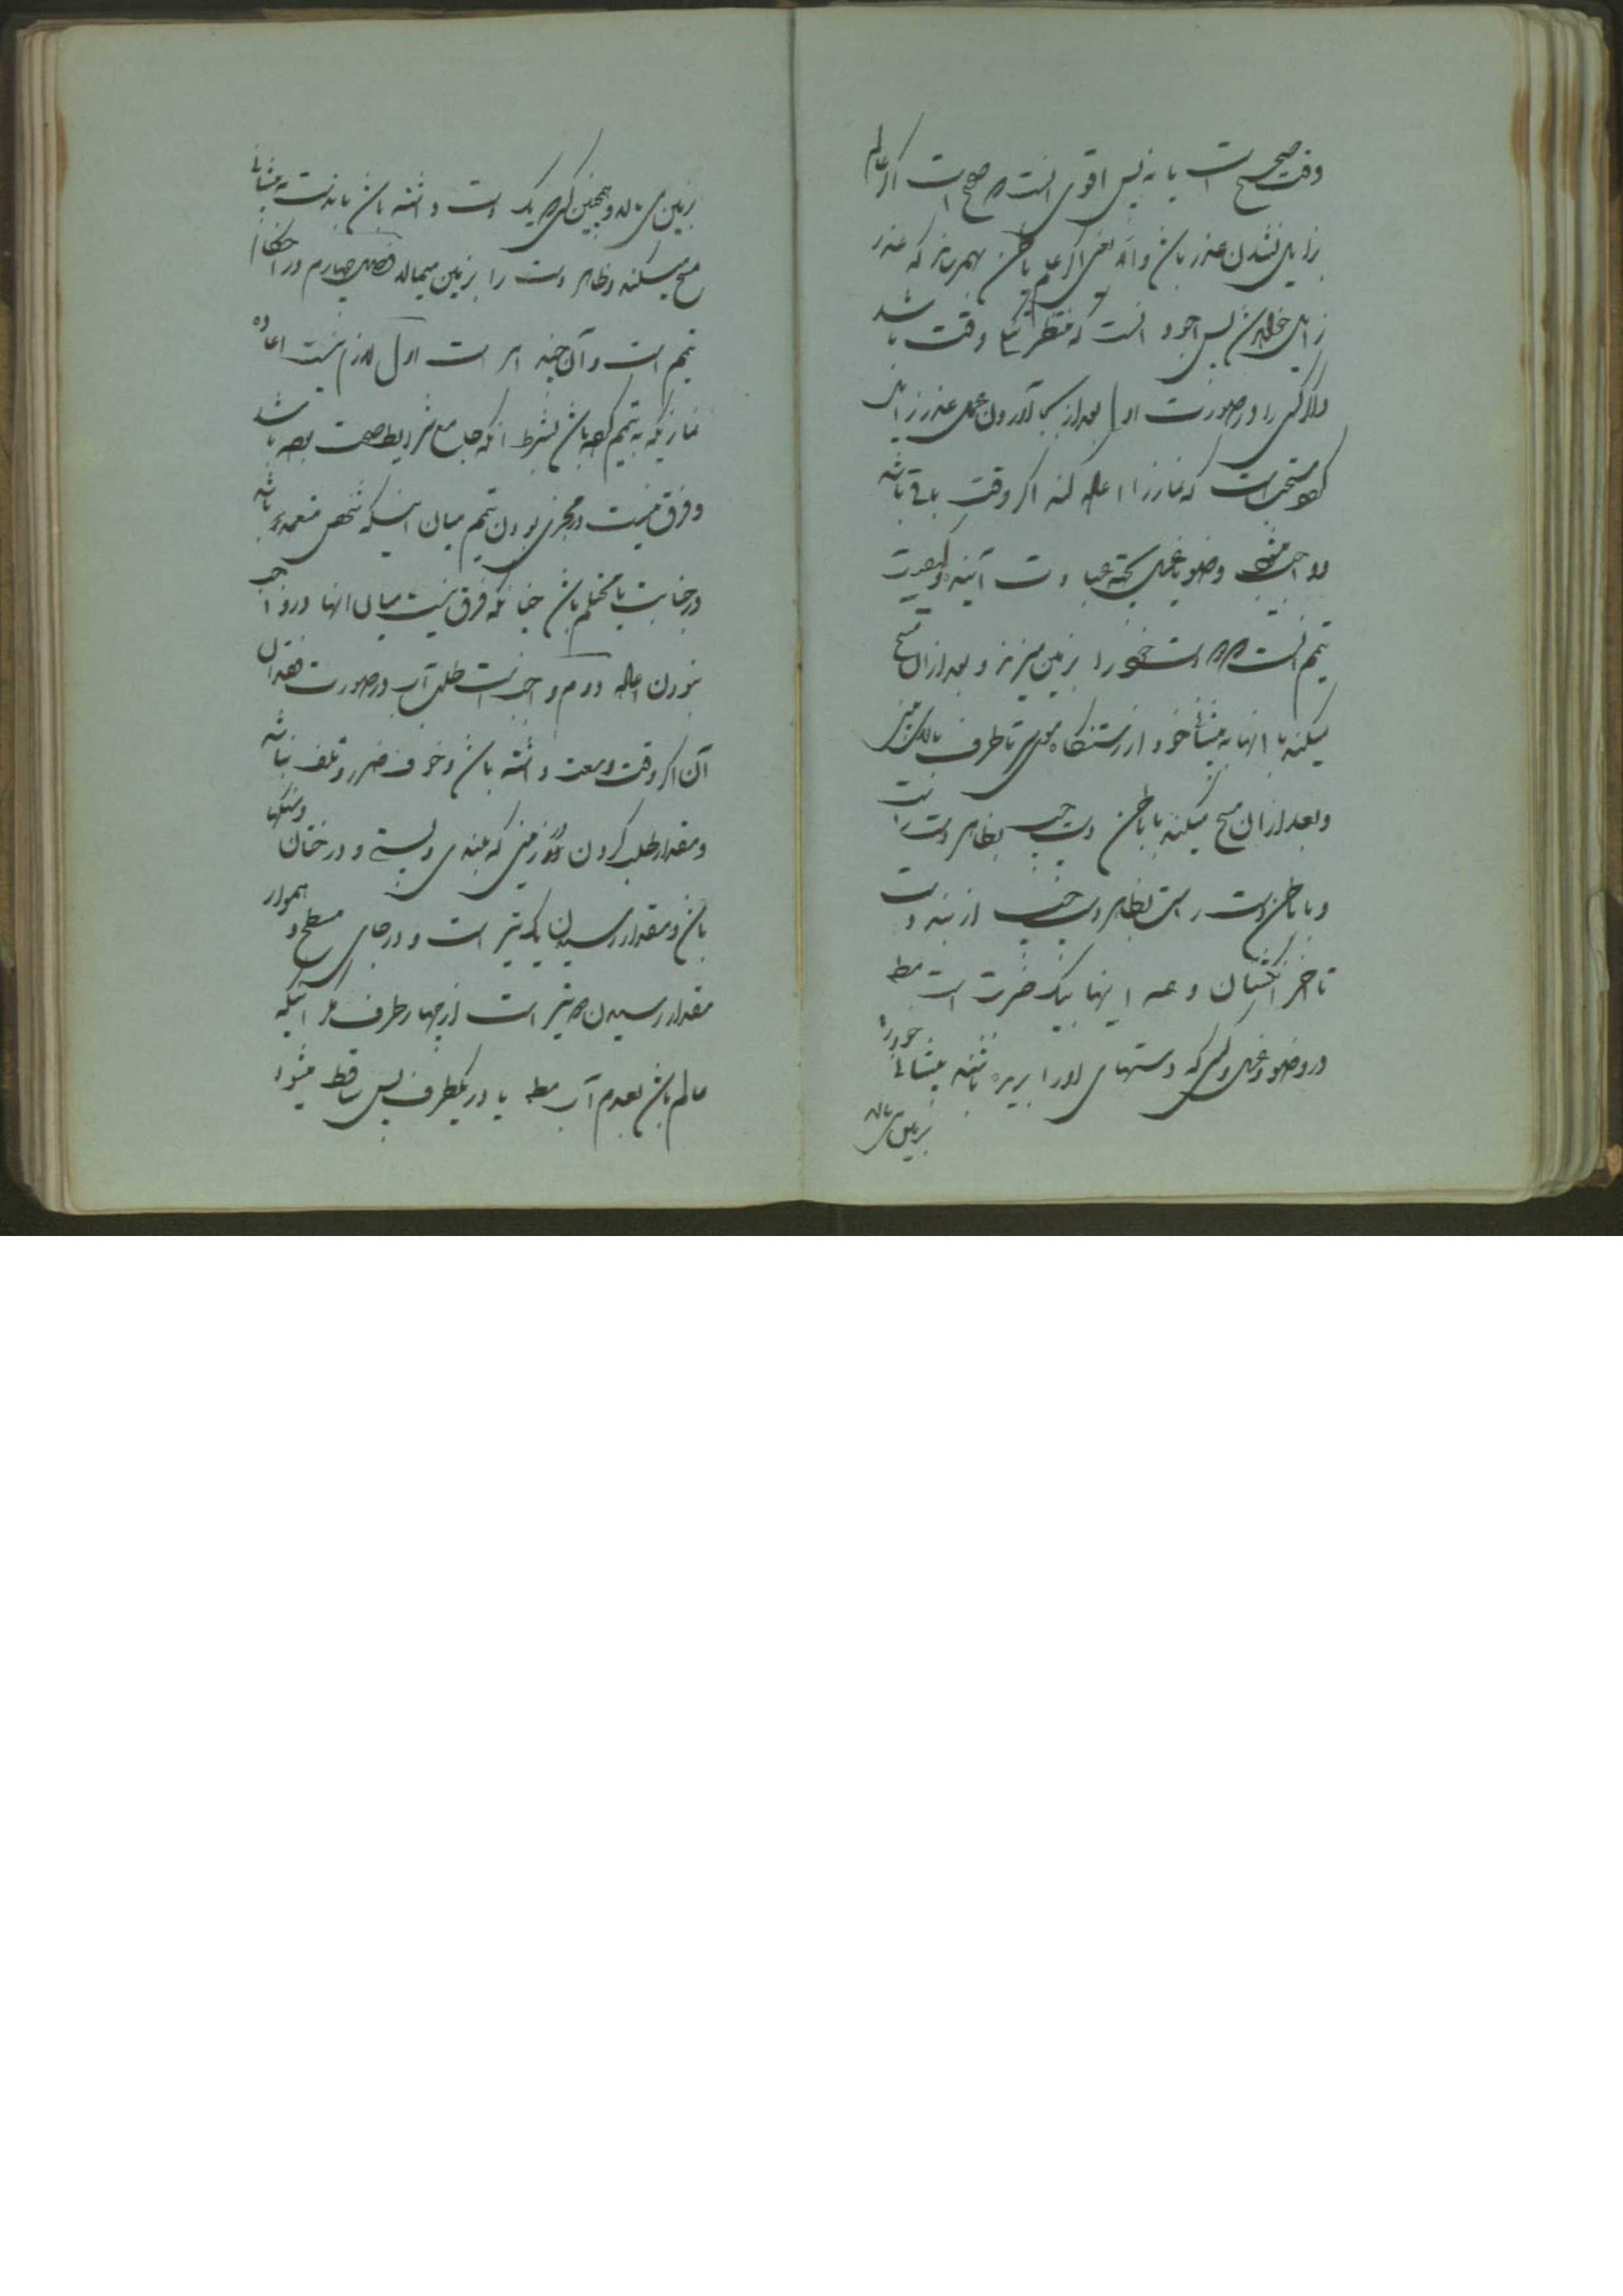 وقت صحیح است یا نه پس اقوی آنست که صحیح است اگر عالم
بزایل نشدن عذر باشد واما یعنی اگر علم یا ظن بهم رساند که عذر
زایل خواهد شد پس اجود آنست که منتظر وقت باشد
ولکن کسی را در صورت اول بعد از بجا آوردن عمل عذر زایل
مستحب است که نماز را اعاده کند اگر وقت باقی باشد
وضو یا غسل بجهة عبادت آینده و کیفیت
تیمم آنست که دست خود را بزمین میزند و بعد از آن مسح
میکند با آنها به پیشانی خود از رستنگاه موی تا طرف بالای بینی
و بعد از آن مسح میکند با باطن دست چپ بظاهر دست راست
و با باطن دست راست بظاهر دست چپ از بند دست
تا آخر انگشتان و همه اینها بیک ضربت است مط
در وضو و غسل و کسی که دستهای او را بریده باشند پیشانی خود را
بزمین می‌مالد
بزمین می مالد و همچنین کسی که یک دست داشته باشد باندست به پیشانی
مسح میکند و ظاهر دست را بزمین میمالد فصل چهارم در احکام
تیمم است و آن چند امر است اول لازم نیست اعاده
نمازیکه به تیمم کرده باشد بشرط آنکه جامع شرایط صحت بوده باشد
و فرق نیست در مجزی بودن تیمم میان اینکه شخص متعمد باشد
در جنابت یا محتلم باشد چنانکه فرق نیست میان انها در واجب
نبودن اعاده دوم واجب است طلب آب در صورت فقدان
آن اگر وقت وسعت داشته باشد و خوف ضرر و تلف نباشد
و مقدار طلب کردن در زمینی که بلندی و پستی و درختان و سنگها
باشد و مقدار رسیدن یک تیر است و در جای مسطح و هموار
مقدار رسیدن دو تیر است از چهار طرف مگر آنکه
عالم باشد بعدم آب مط یا در یکطرف پس ساقط میشود